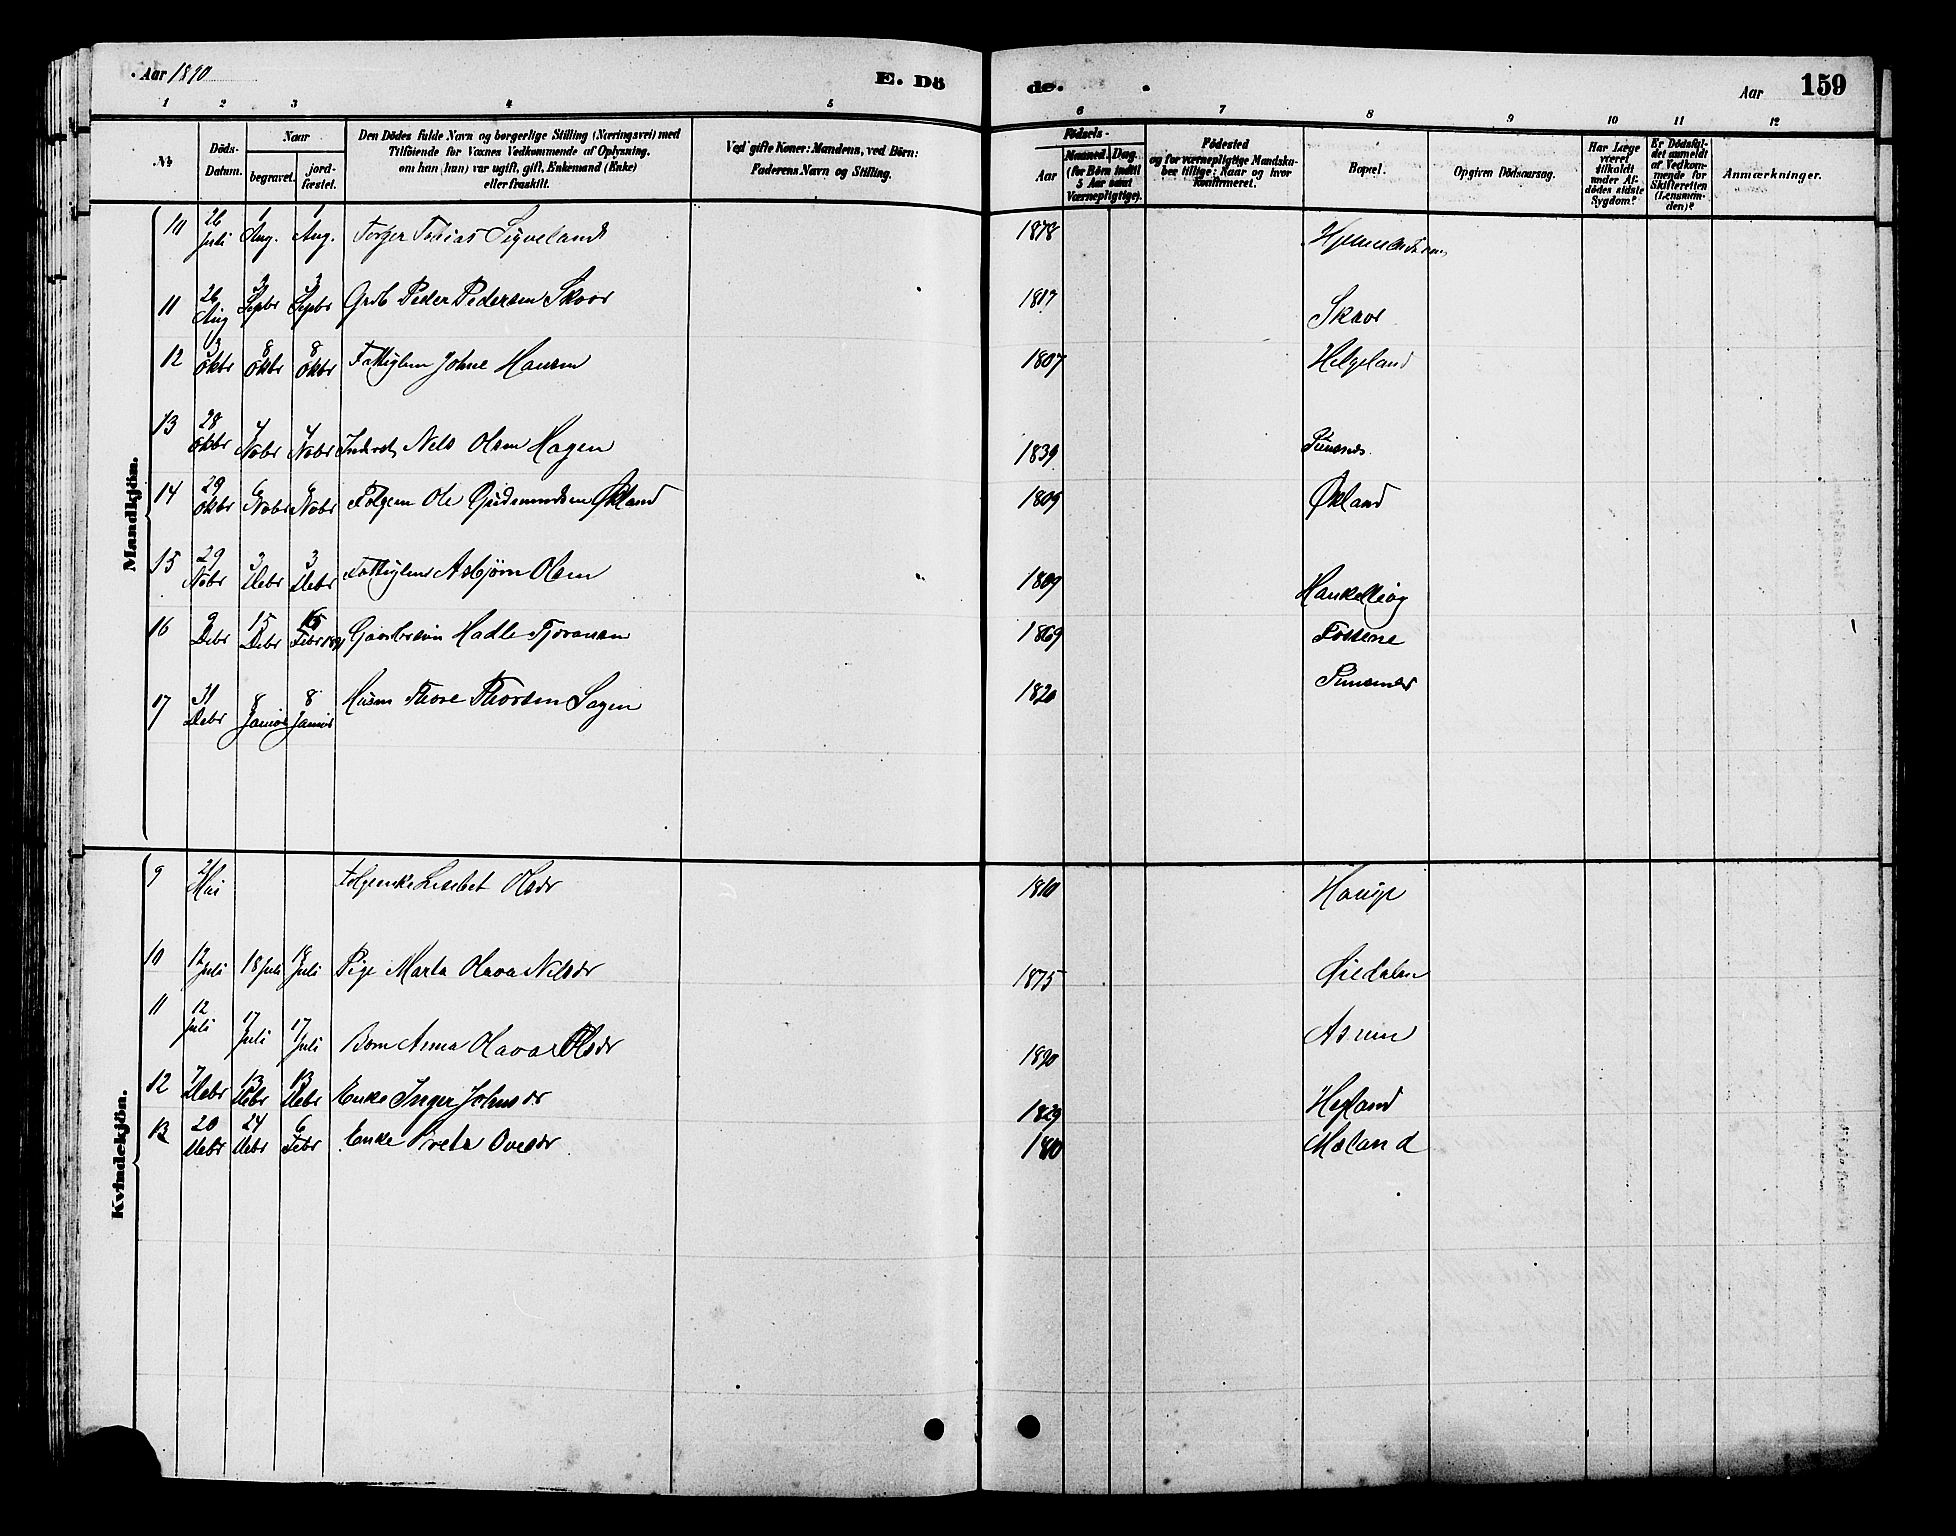 Aar 1890
E. Dö
de.
Aar
159
1 2 3 4 5 6 7 8 9 10 11 12
№
Döds-Datum.
Naar
begravet.
jord-fæstet.
Den Dödes fulde Navn og borgerlige Stilling (Næringsvei) med
Tilföiende for Voxnes Vedkommende af Oplysning,
om han (hun) var ugift, gift, Enkemand (Enke)
eller fraskilt.
Ved gifte Koner: Mandens, ved Börn:
Faderens Navn og Stilling.
Födsels-
Aar
Maaned. Dag.
(for Börn indtil
5 Aar samt
Værnepligtige).
Födested
og for værnepligtige Mandska-
ber tillige: Naar og hvor
konfirmeret.
Bopæl.
Opgiven Dödsaarsag.
Har Læge
været
tilkaldt
under Af-
dödes sidste
Sygdom?
Er Dödsfal-
det anmeldt
af Vedkom-
mende for
Skifteretten
(Lensman-
den)?
Anmærkninger.
Mandkjön.
10 26 Juli 1 Aug. 1 Aug. Torger Tobias Sigveland 1878
11 26 Aug 3 Septbr 3 Septbr Grdb Peder Pedersen Skaar 1817 Skaar
12 3 Oktbr 8 Oktbr 8 Oktbr Fattiglem Johne Hansen 1807 Helgeland
13 28 Oktbr 4 Nobr 4 Nobr Inderst Nels Olsen Hagen 1839
14 29 Oktbr 6 Nobr 6 Nobr Folgem Ole Gudmundsen Økland 1809 Økland
15 29 Nobr 3 Debr 3 Debr Fattiglem Asbjørn Olsen 1809
16 9 Debr 15 Debr 15 Febr Gaardbrsøn Hadle Tjøransen 1869 Fossene
17 31 Debr 8 Januar 8 Januar Husm Thore Thorsen Sagen 1820
Kvindekjön.
9 Mai Folgeenke Lisebet Olsdr 1810 Hauge
10 12 Juli 18 Juli 18 Juli Pige Marta Olava Nilsdr 1875
11 12 Juli 17 Juli 17 Juli Barn Anna Olava Olsdr 1890
12 7 Debr 13 Debr 13 Debr Enke Inger Johnsdr 1829 Hegland
13 20 Debr 24 Debr 6 Febr Enke Ovedr Mæland